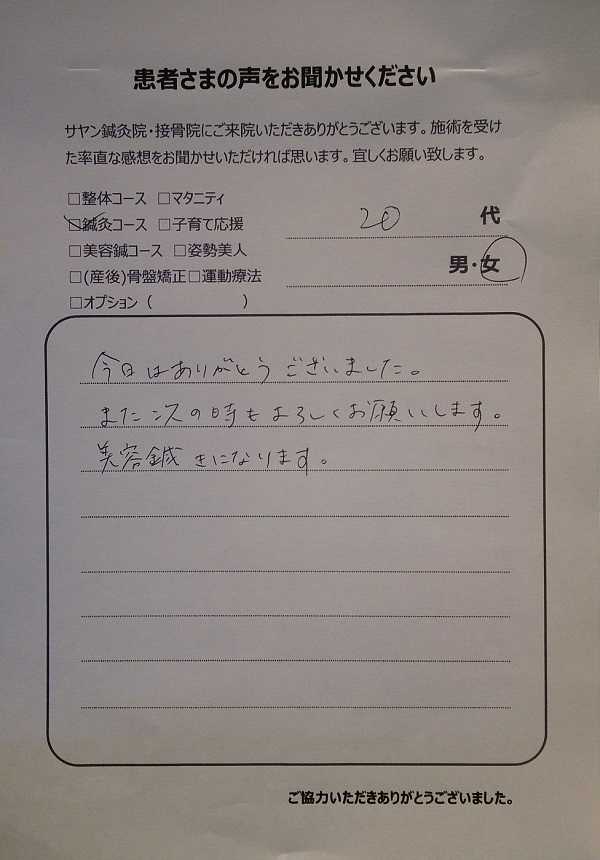 患者さまの声をお聞かせください
サヤン鍼灸院・接骨院にご来院いただきありがとうございます。施術を受け
た率直な感想をお聞かせいただければ思います。宜しくお願い致します。
□整体コース □マタニティ
□鍼灸コース □子育て応援
20 代
□美容鍼コース □姿勢美人
男・女
□(産後)骨盤矯正□運動療法
□オプション（　　　　　　）
今日はありがとうございました。
また次の時もよろしくお願いします。
美容鍼 きになります。
ご協力いただきありがとうございました。